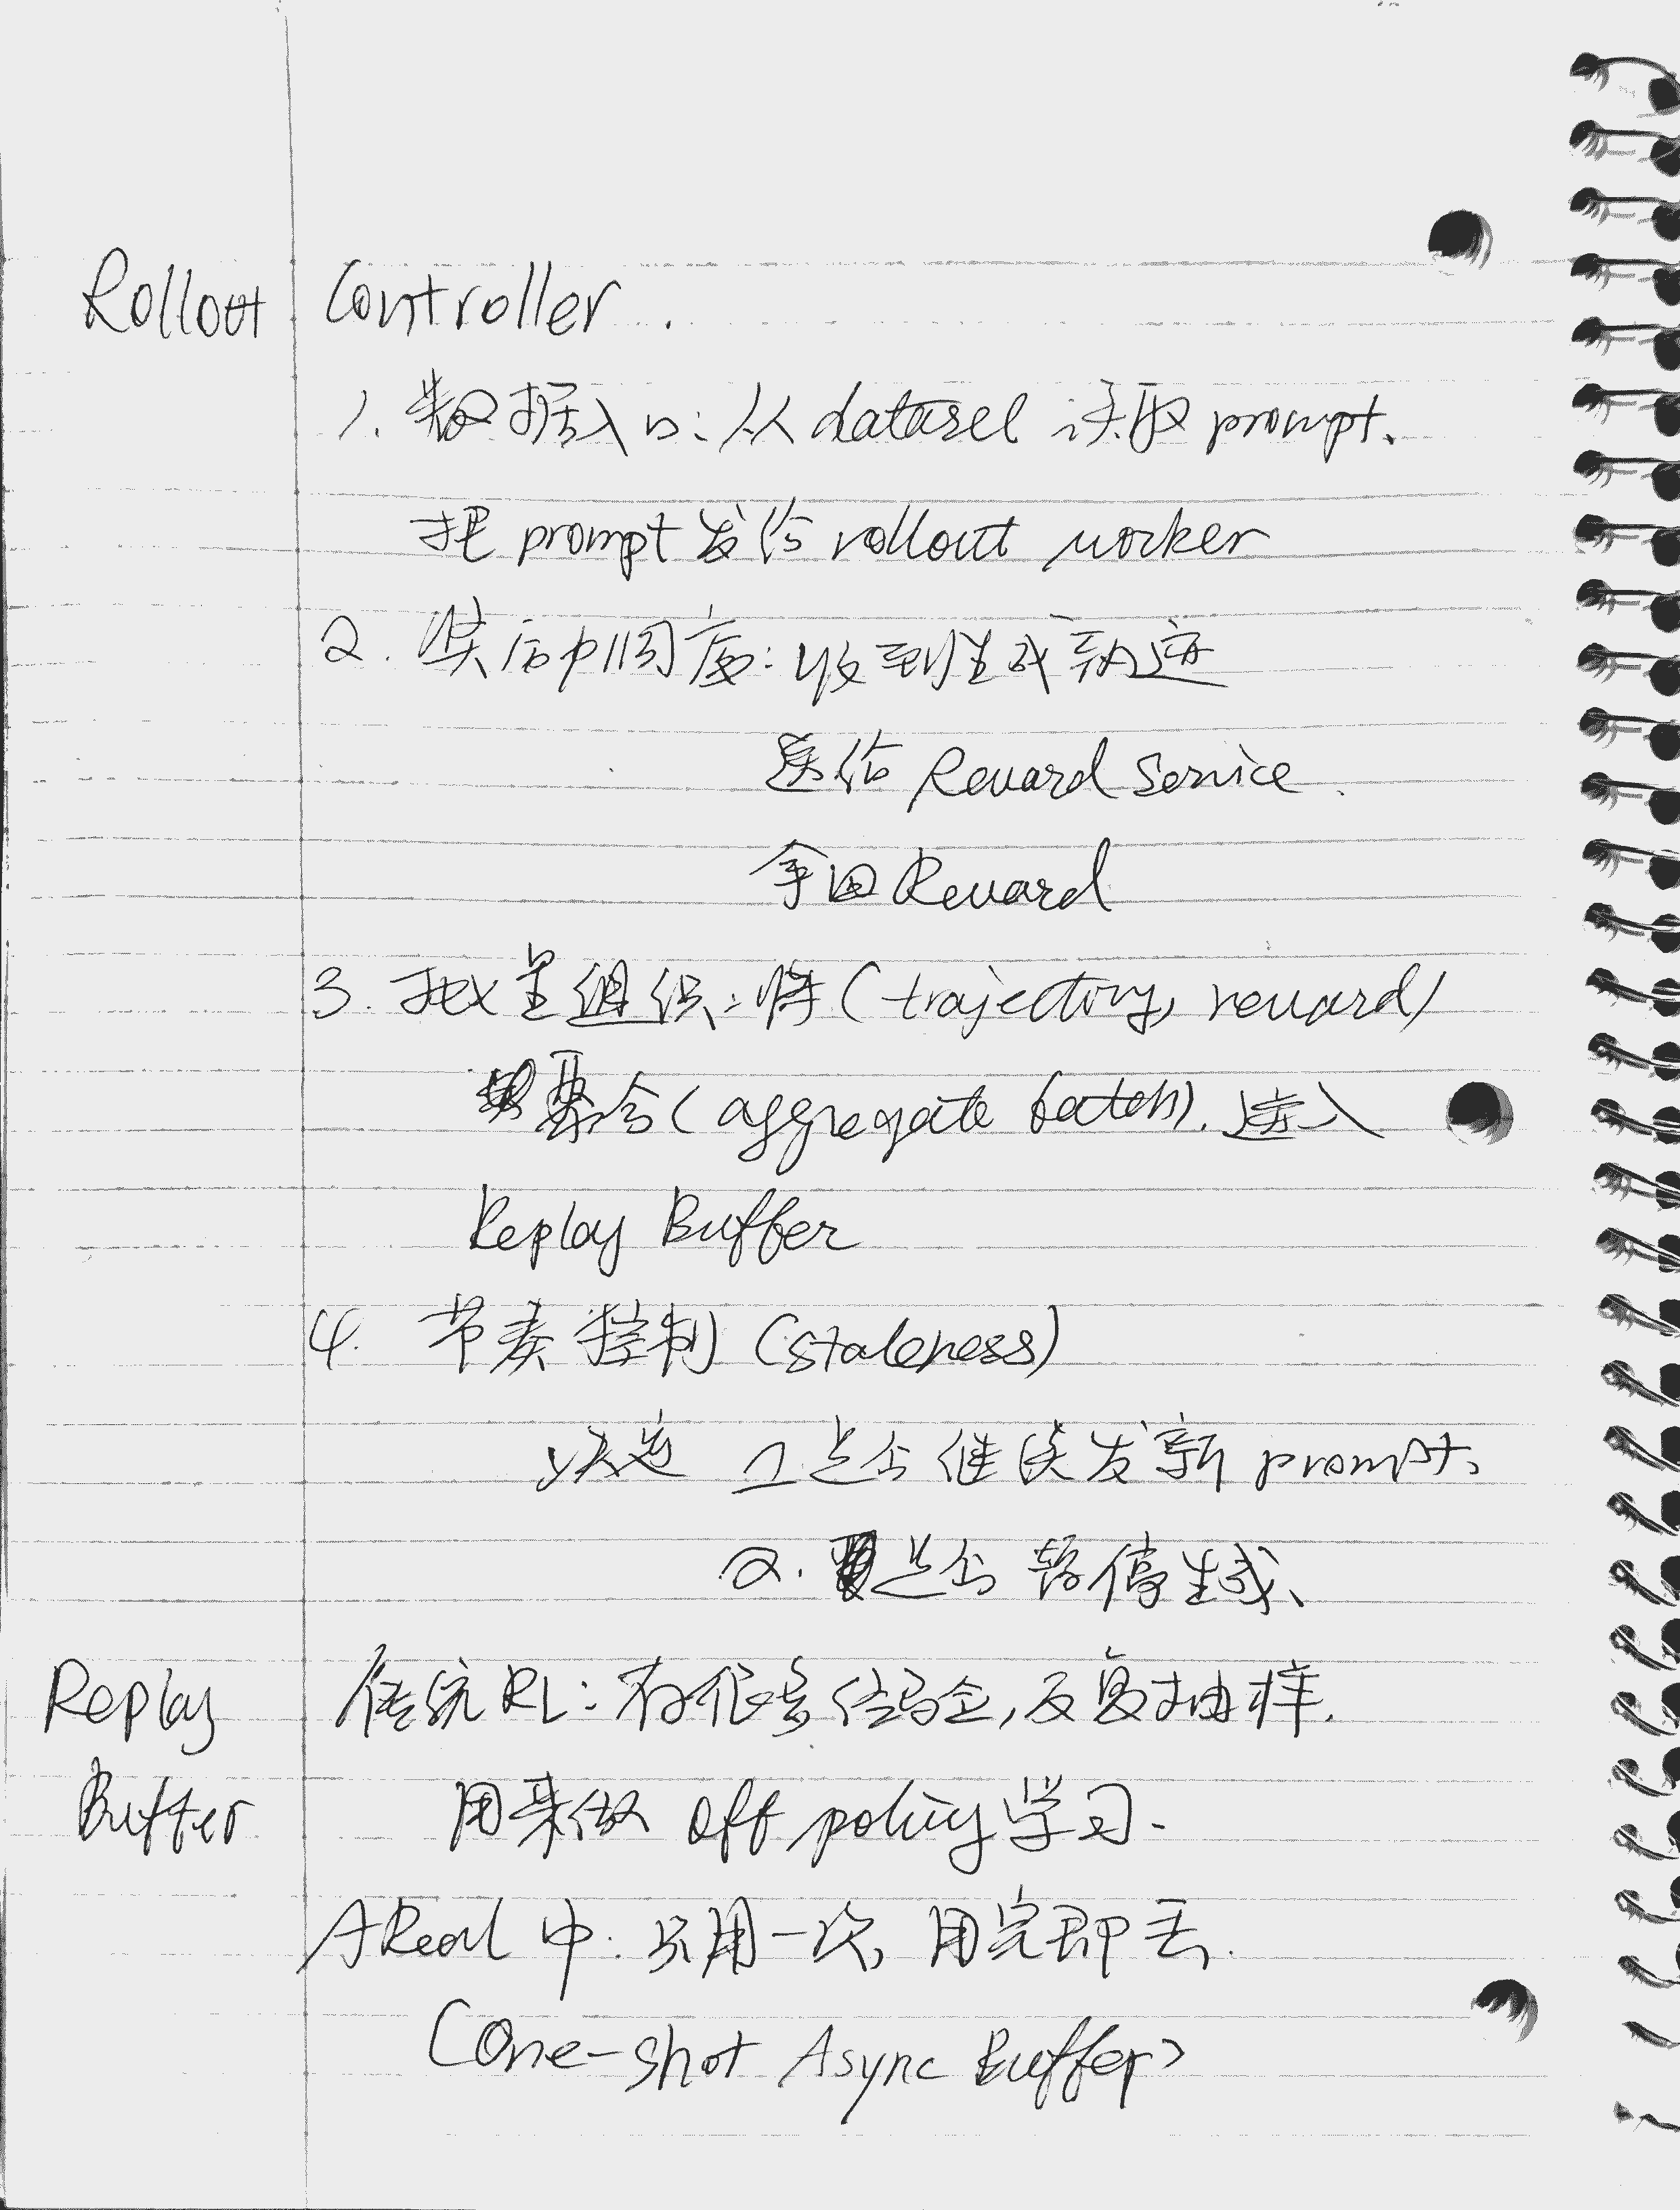 Rollout Controller.
1. 数据入口: 从 dataset 读取 prompt、
把 prompt 发给 rollout worker
2. 奖励调度: 收到生成轨迹
送给 Reward Service.
拿回 Reward
3. 批量组织: 将 (trajectory, reward)
聚合 (aggregate batch). 送入
Replay Buffer
4. 节奏控制 (staleness)
决定 1. 是否继续发新 prompt、
2. 是否暂停生成、
Replay 传统RL: 存很多经验, 反复抽样.
Buffer 用来做 off policy 学习.
AReal 中: 只用一次, 用完即丢.
(One-shot Async Buffer)